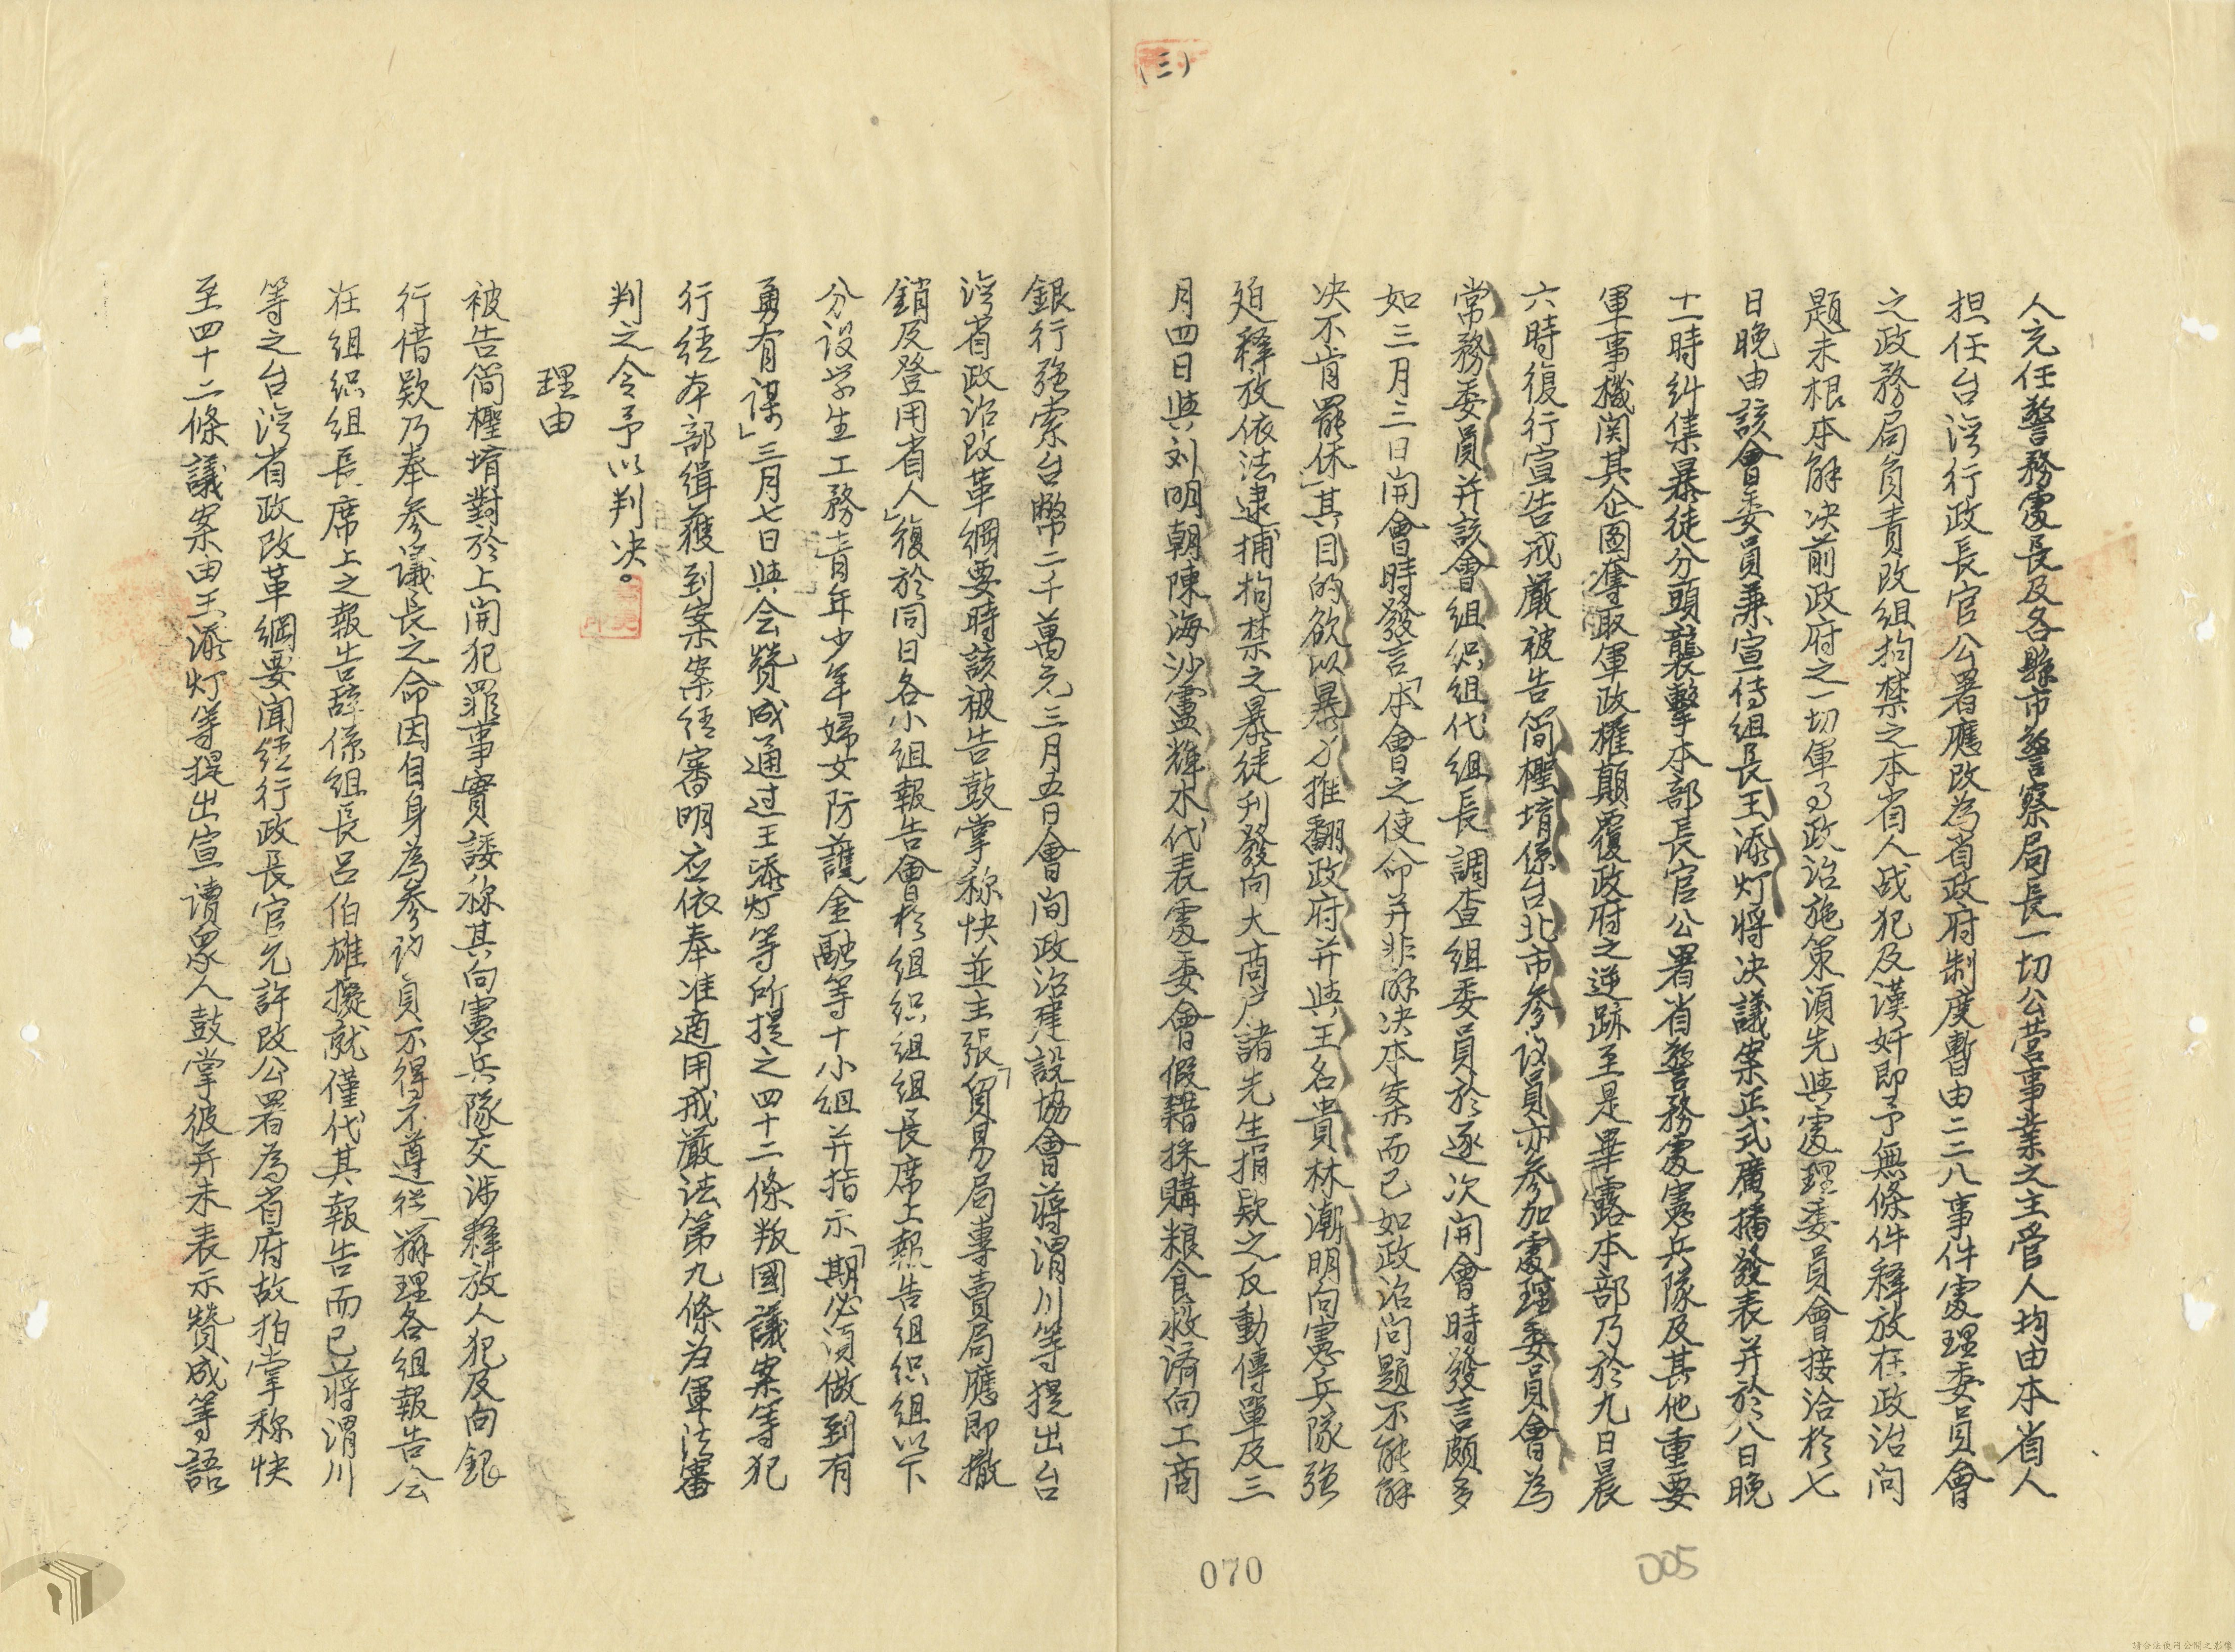 (三)
人充任警務處長及各縣市警察局長一切公营事業之主管人均由本省人
担任台湾行政長官公署應改為省政府制度暫由二二八事件處理委員會
之政務局負責改組拘禁之本省人战犯及漢奸即予無條件釋放在政治问
題未根本解决前政府之一切軍事政治施策須先與處理委員會接洽於七
日晚由該會委員兼宣传組長王添灯将决議案正式廣播發表并於八日晚
十一時糾集暴徒分頭襲擊本部長官公署省警務處憲兵隊及其他重要
軍事機関其企图奪取軍政權顛覆政府之逆跡至是畢露本部乃於九日晨
六時復行宣告戒嚴被告简檉堉係台北市参议員亦参加處理委員會為
常務委員并該會組织組代組長調查組委員於逐次開會時發言頗多
如三月三日開會時發言「本會之使命并非解决本案而已如政治问題不能解
决不肯罷休」其目的欲以暴力推翻政府并與王名貴林潮明向憲兵隊强
廹釋放依法逮捕拘禁之暴徒刋發向大商户諸先生捐欵之反動傳單及三
月四日與刘明朝陳海沙盧輝木代表處委會假藉採購粮食救濟向工商
銀行强索台幣二千萬元三月五日會间政治建設協會蔣渭川等提出台
湾省政治改革綱要時該被告鼓掌称快並主張「貿易局專賣局應即撤
銷及登用省人」復於同日各小組報告會於組织組組長席上報告組织組以下
分设学生工務青年少年婦女防護金融等十小組并指示「期必須做到有
勇有謀」三月七日與会贊成通过王添灯等所提之四十二條叛國議案等犯
行経本部緝獲到案案经審明应依奉准適用戒嚴法第九條为軍法審
判之令予以判决。
理由
被告简檉堉對於上開犯罪事實諉称其向憲兵隊交涉釋放人犯及向銀
行借欵乃奉参議長之命因自身為参议員不得不遵從辦理各組報告会
在組织組長席上之報告辞係組長呂伯雄擬就僅代其報告而已蔣渭川
等之台湾省政改革綱要闻经行政長官允許改公署為省府故拍掌称快
至四十二條議案由王添灯等提出宣讀衆人鼓掌彼并未表示贊成等語
070
005
請合法使用公開之影像